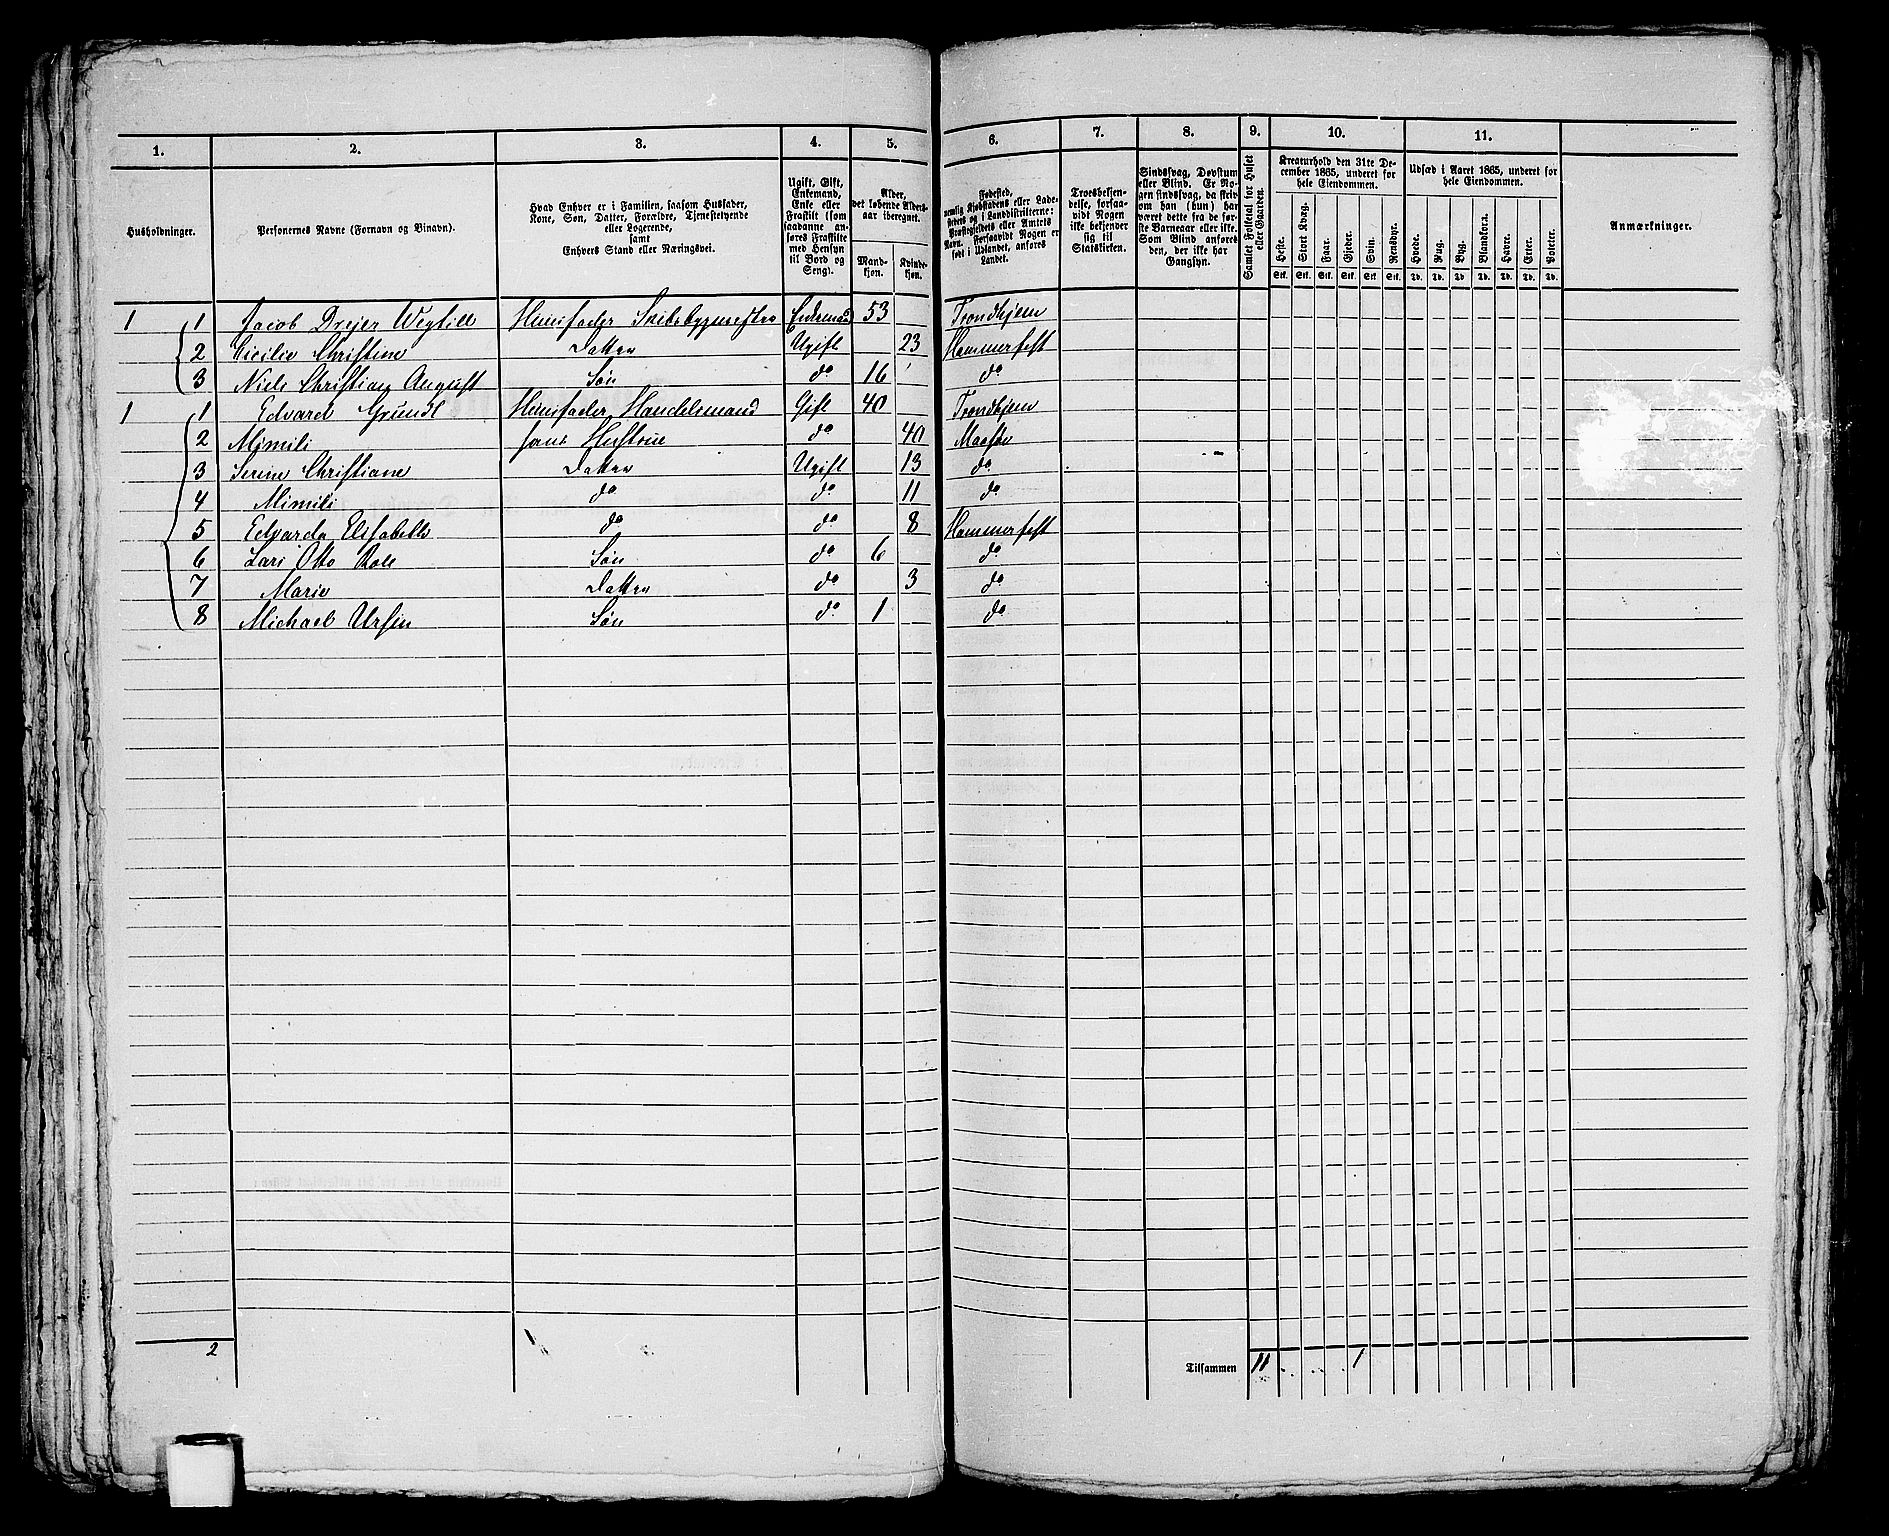 1. 2. 3. 4. 5. 6. 7. 8. 9. 10. 11.
Husholdninger.
Personernes Navne (Fornavn og Binavn).
Hvad Enhver er i Familien, saasom Husfader,
Kone, Søn, Datter, Forældre, Tjenestetyende
eller Logerende,
samt
Enhvers Stand eller Næringsvei.
Ugift, Gift,
Enkemand,
Enke eller
Fraskilt (som
saadanne an-
føres Fraskilte
med Hensyn
til Bord og
Seng).
Alder,
det løbende Alders-
aar iberegnet.
Mand-
kjøn.
Kvinde-
kjøn.
Fødested,
nemlig Kjøbstadens eller Lade-
stedets og i Landdistrikterne:
Præstegjeldets eller Amtets
Navn. Forsaavidt Nogen er
født i Udlandet, anføres
Landet.
Troesbekjen-
delse, forsaa-
vidt Nogen
ikke bekjender
sig til
Statskirken.
Sindssvag, Døvstum
eller Blind. Er No-
gen sindssvag, da skriv
om han (hun) har
været dette fra de før-
ste Barneaar eller ikke.
Som Blind anføres
den, der ikke har
Gangsyn.
Samlet Folketal for Huset
eller Gaarden.
Kreaturhold den 31te De-
cember 1865, underet for
hele Eiendommen.
Heste. Stort Kvæg. Faar. Gjeder. Svin. Rensdyr.
Stk. Stk. Stk. Stk. Stk. Stk.
Udsæd i Aaret 1865, underet for
hele Eiendommen.
Hvede. Rug. Byg. Blandkorn. Havre. Erter. Poteter.
Td. Td. Td. Td. Td. Td. Td.
Anmærkninger.
1 1 Jacob Drejer Huusfader Enkemand 53 Trondhjem
2 Cicilie Christine Datter Ugift 23 Hammerfest
3 Niels Christian August Søn do 16 do
1 1 Edvard Grundt Huusfader Handelsmand Gift 40 Trondhjem
2 Mimili hans Hustrue do 40 Maasøe
3 Serine Christiane Datter Ugift 13 do
4 Mimili do do 11 do
5 Edvarda Elisabeth do do 8 Hammerfest
6 Lars Otto Søn do 6 do
7 Marie Datter do 3 do
8 Michael Ursin Søn do 1 do
2 Tilsammen 11 1